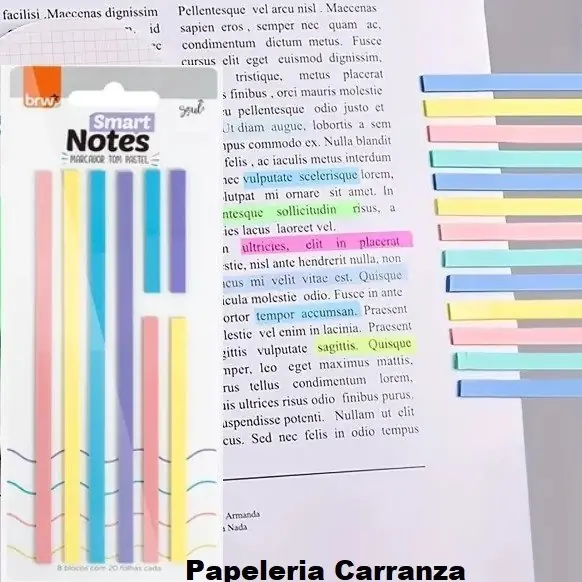 facilisi .Maecenas dignissim
id
Pellentesque vel arcu nisl . Maecenas
sapien eros , semper nec quam ac,
condimentum dictum metus. Fusce
cursus elit eget euismod dignissim,
tristique, metus placerat
finibus , orci mauris molestie
pellentesque odio justo et
Ut diam augue, lobortis a sem
commodo ex. Nulla blandit
felis , ac iaculis metus interdum
nec vulputate scelerisque lorem,
mi ornare sit amet. In
sollicitudin risus, a
lacus laoreet vel.
ultricies, elit in placerat
nisl ante hendrerit nulla, non
mi velit vitae est. Quisque
molestie odio. Fusce in ante
tempor accumsan. Praesent
vel enim in lacinia. Praesent
vulputate sagittis. Quisque
leo eget maximus mattis,
tellus condimentum lorem,
ultrices risus odio finibus purus,
potenti. Nullam ut elit
Sed nec felis in odio tempus
Armanda
Nada
brw
Smart
Notes
MARCADOR TOM PASTEL
8 blocos com 20 folhas cada
Papeleria Carranza